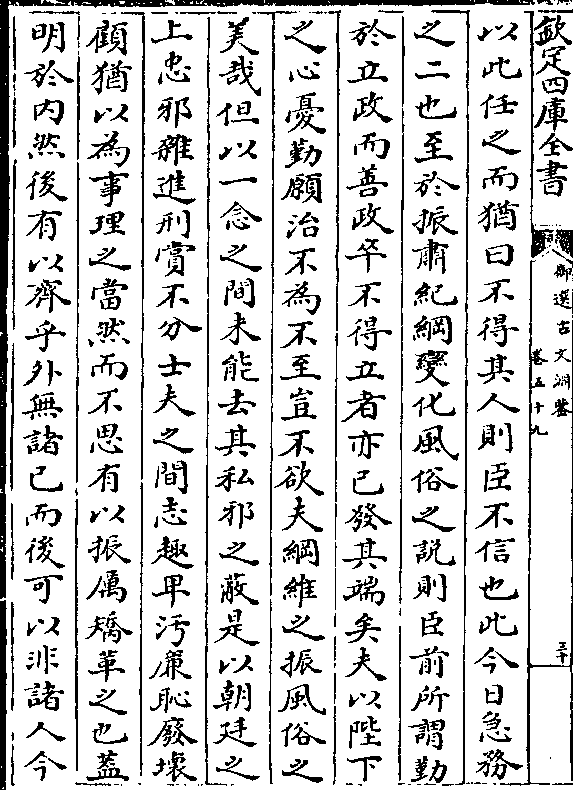 欽定四庫全書
御選古文淵鑒
卷五十九
三十
以此任之而猶曰不得其人則臣不信也此今日急務
之二也至於振肅紀綱變化風俗之說則臣前所謂勤
於立政而善政卒不得立者亦已發其端矣夫以陛下
之心憂勤願治不為不至豈不欲夫綱維之振風俗之
美哉但以一念之間未能去其私邪之蔽是以朝廷之
上忠邪雜進刑賞不分士夫之間志趣卑汚廉恥廢壞
顧猶以為事理之當然而不思有以振厲矯革之也蓋
明於內然後有以齊乎外無諸已而後可以非諸人今